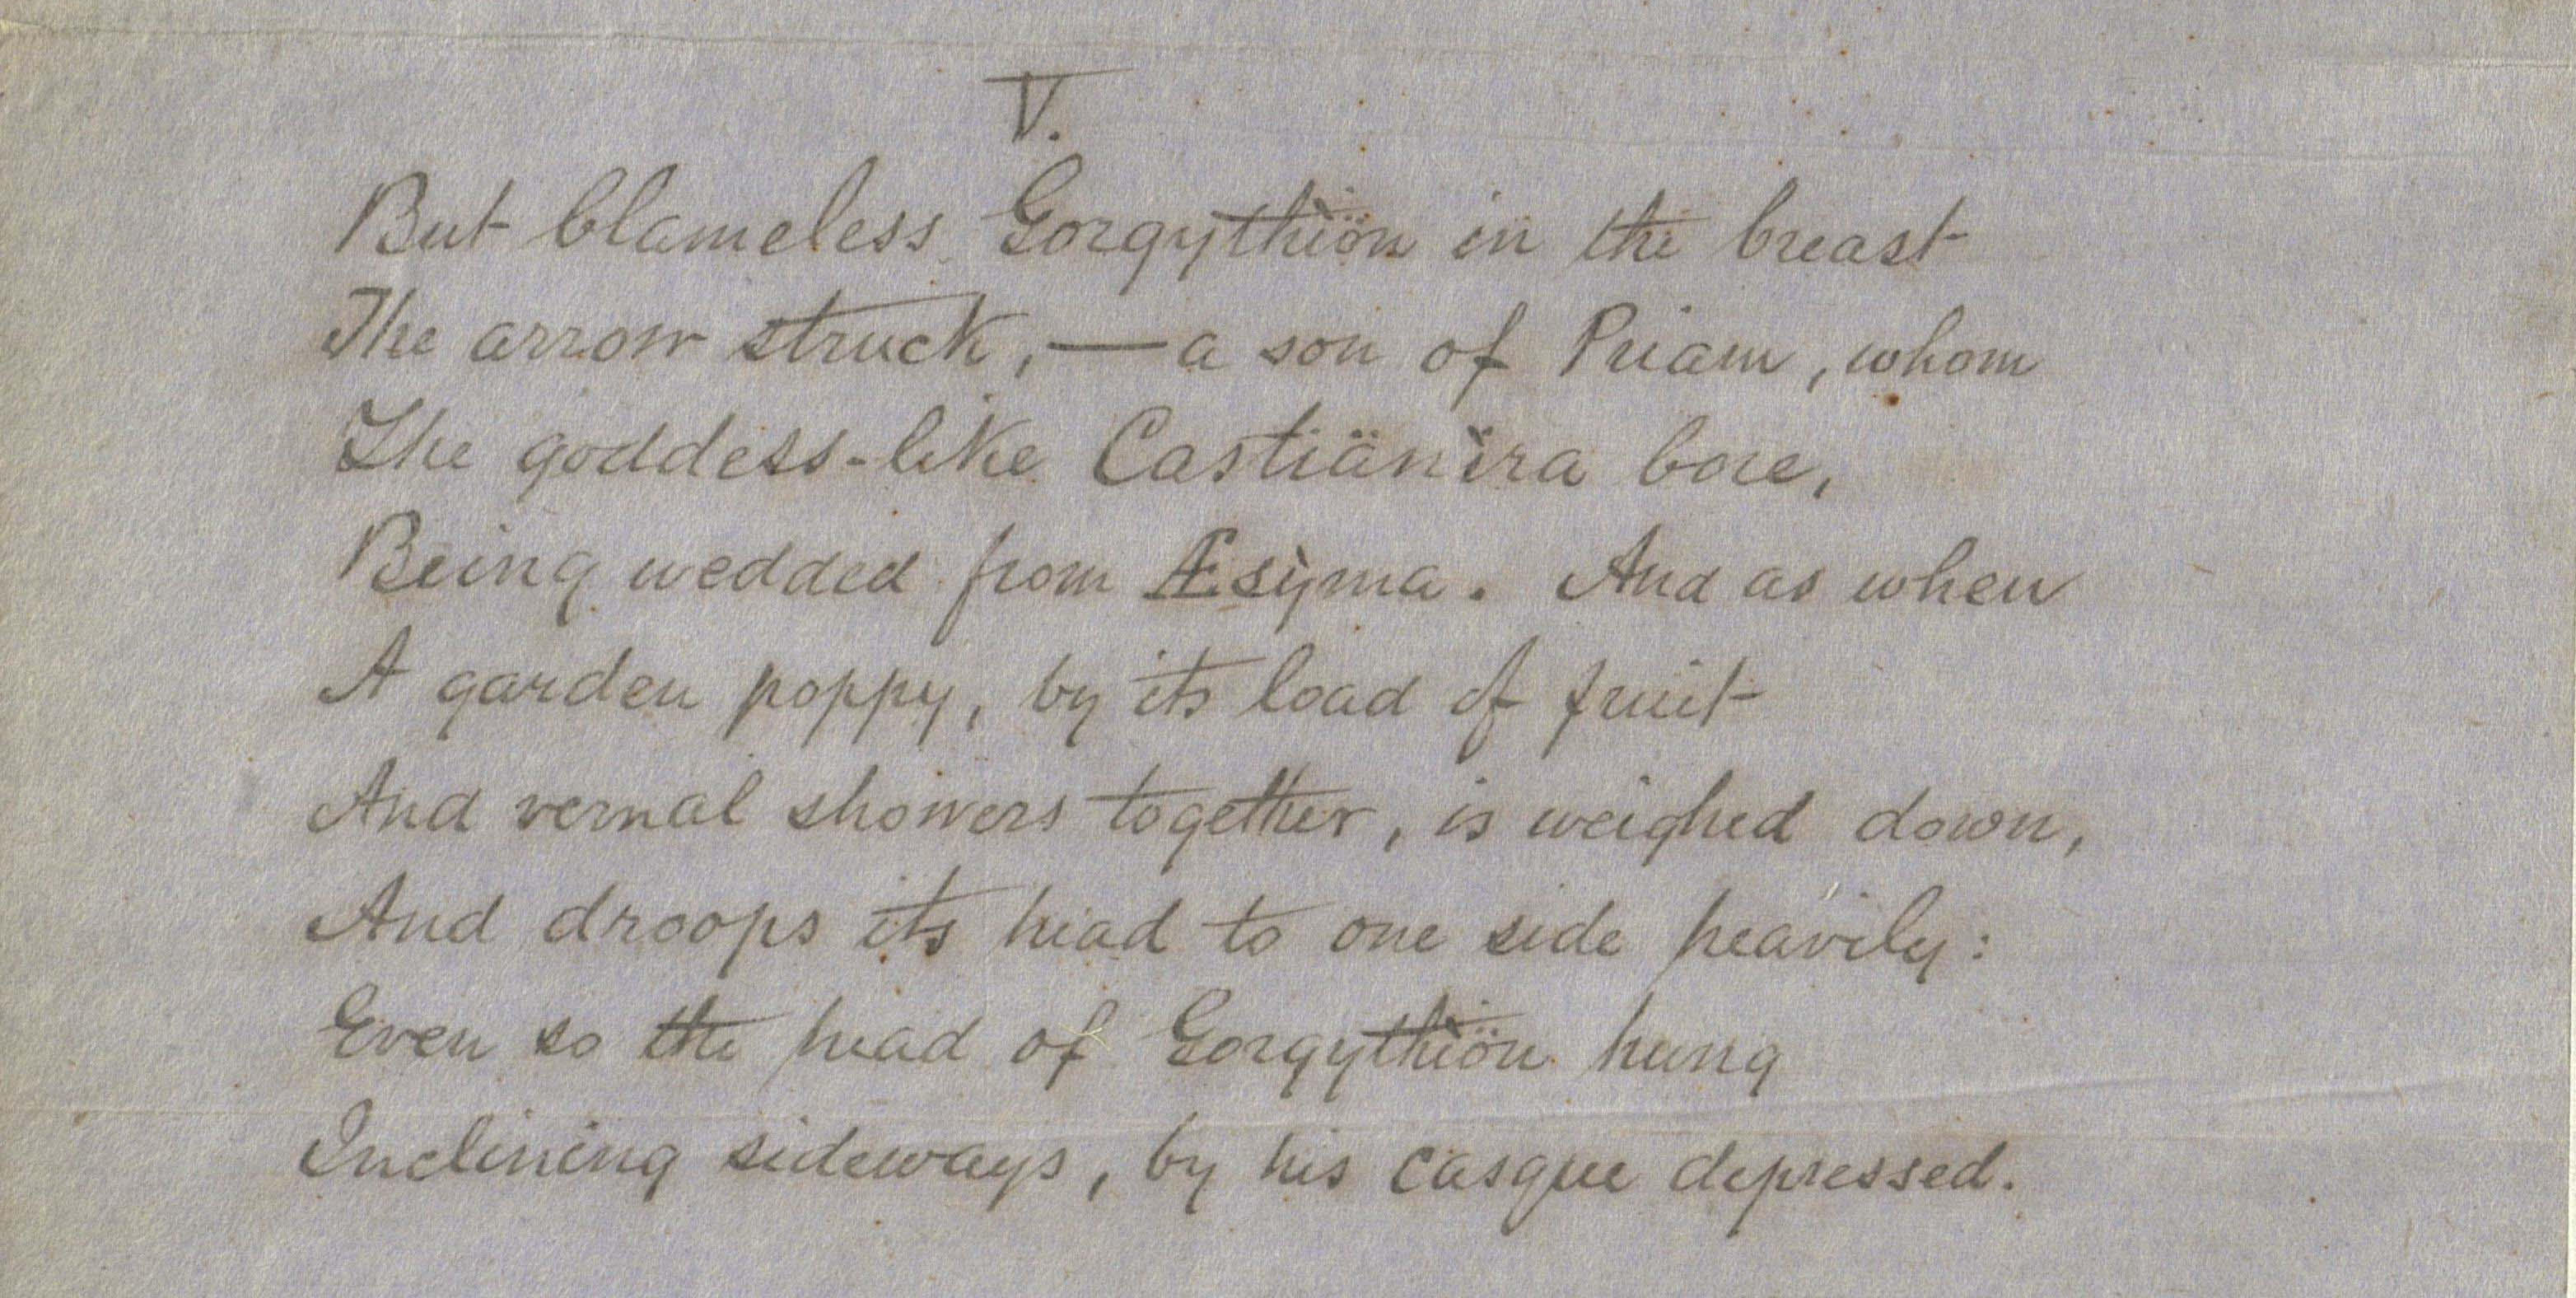 V.
But blameless Gorgythìön in the breast
The arrow struck, — a son of Priam, whom
The goddess-like Castiänìra bore,
Being wedded from Æsỳma. And as when
A garden poppy, by its load of fruit
And vernal showers together, is weighed down,
And droops its head to one side heavily:
Even so the head of Gorgythìön hung
Inclining sideways, by his casque depressed.